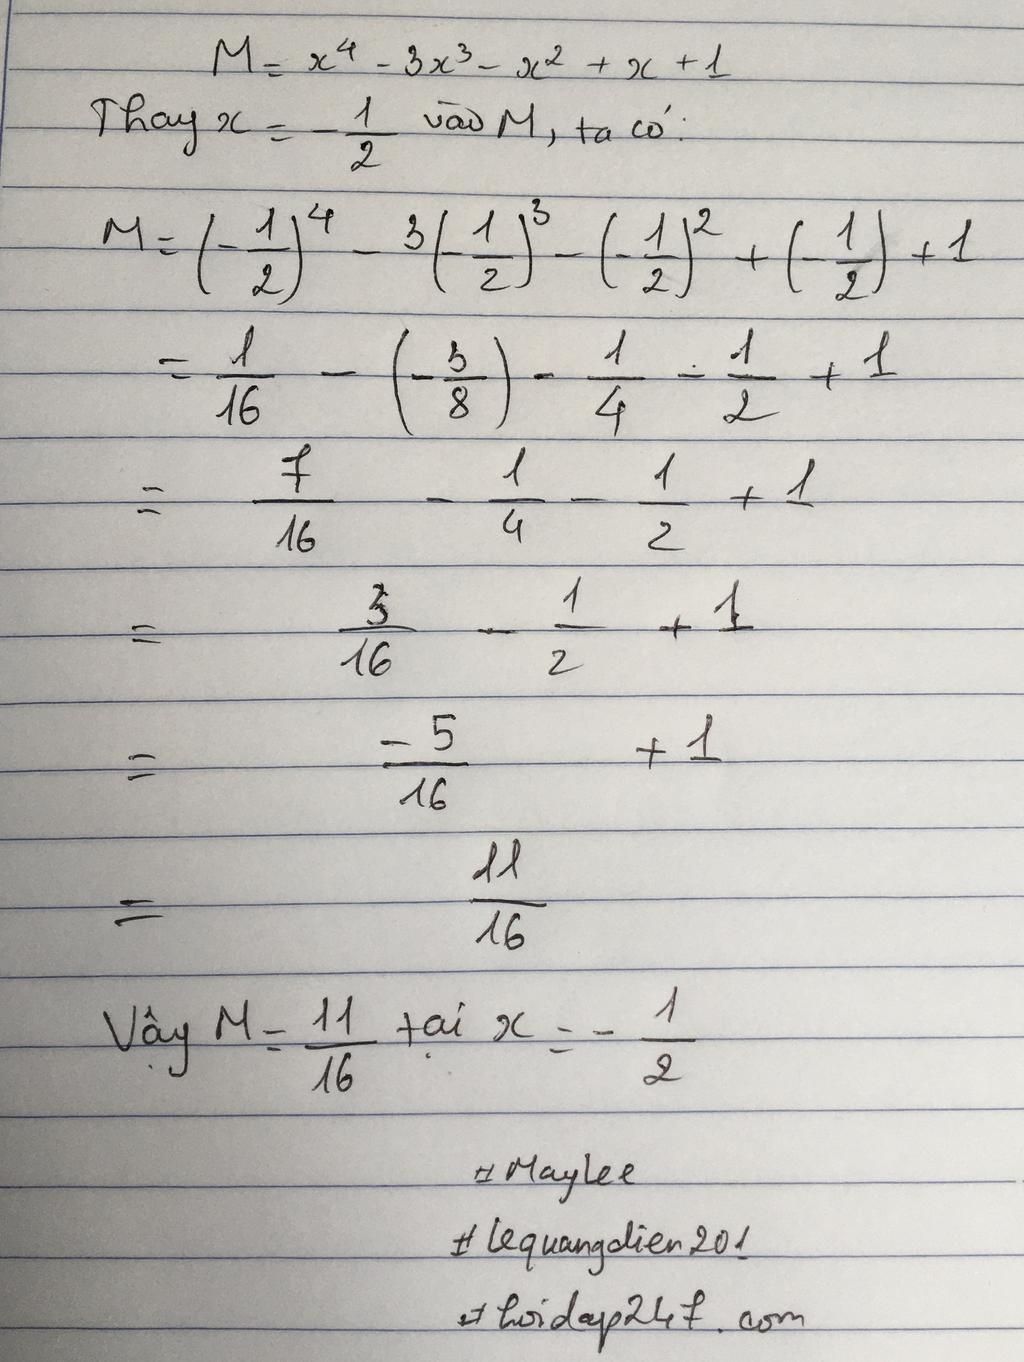 M = x⁴ - 3x³ - x² + x + 1
Thay x = - 1/2 vào M, ta có:
M = (- 1/2)⁴ - 3(- 1/2)³ - (- 1/2)² + (- 1/2) + 1
= 1/16 - (- 3/8) - 1/4 - 1/2 + 1
= 7/16 - 1/4 - 1/2 + 1
= 3/16 - 1/2 + 1
= -5/16 + 1
= 11/16
Vậy M = 11/16 tại x = - 1/2
#MayLee
#lequangdien201
#hoidap247.com